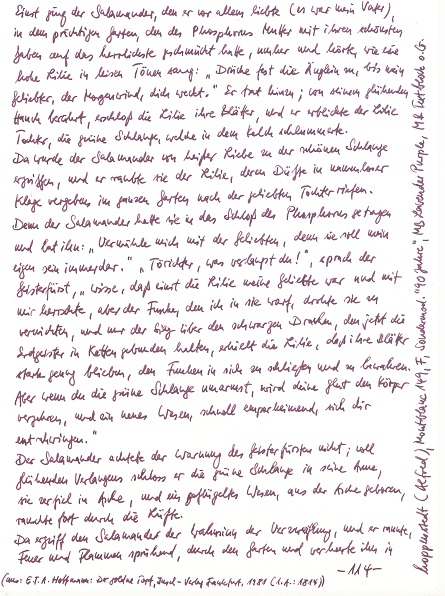 Einst ging der Salamander, den er vor allem liebte (es war mein Vater),
in dem prächtigen Garten, den des Phosphorus Mutter mit ihren schönsten
Gaben auf das herrlichste geschmückt hatte, umher und hörte, wie eine
hohe Lilie in leisen Tönen sang: „Drücke fest die Äuglein zu, bis mein
Geliebter, der Morgenwind, dich weckt." Er trat hinzu; von seinem glühenden
Hauch berührt, erschloß die Lilie ihre Blätter, und er erblickte der Lilie
Tochter, die grüne Schlange, welche in dem Kelch schlummerte.
Da wurde der Salamander von heißer Liebe zu der schönen Schlange
ergriffen, und er raubte sie der Lilie, deren Düfte in namenloser
Klage vergebens im ganzen Garten nach der geliebten Tochter riefen.
Denn der Salamander hatte sie in das Schloß des Phosphorus getragen
und bat ihn: „Vermähle mich mit der Geliebten, denn sie soll mein
eigen sein immerdar." „Törichter, was verlangst du!", sprach der
Geisterfürst, „wisse, daß einst die Lilie meine Geliebte war und mit
mir herrschte, aber der Funke, den ich in sie warf, drohte sie zu
vernichten, und nur der Sieg über den schwarzen Drachen, den jetzt die
Erdgeister in Ketten gebunden halten, erhielt die Lilie, daß ihre Blätter
stark genug blieben, den Funken in sich zu schließen und zu bewahren.
Aber wenn du die grüne Schlange umarmst, wird deine Glut den Körper
verzehren, und ein neues Wesen, schnell emporkeimend, sich dir
entschwingen."
Der Salamander achtete der Warnung des Geisterfürsten nicht; voll
glühenden Verlangens schloss er die grüne Schlange in seine Arme,
sie zerfiel in Asche, und ein geflügeltes Wesen, aus der Asche geboren,
rauschte fort durch die Lüfte.
Da ergriff den Salamander der Wahnsinn der Verzweiflung, und er rannte,
Feuer und Flammen sprühend, durch den Garten und verheerte ihn in
-114-
(aus: E.T.A. Hoffmann: Der goldne Topf, Insel-Verlag Frankfurt, 1981 (1.A.: 1814))
hoppenstedt (Alfred), Montblanc 149, F, Sondermod. "90 Jahre", MB Lavender Purple, MB Tuch